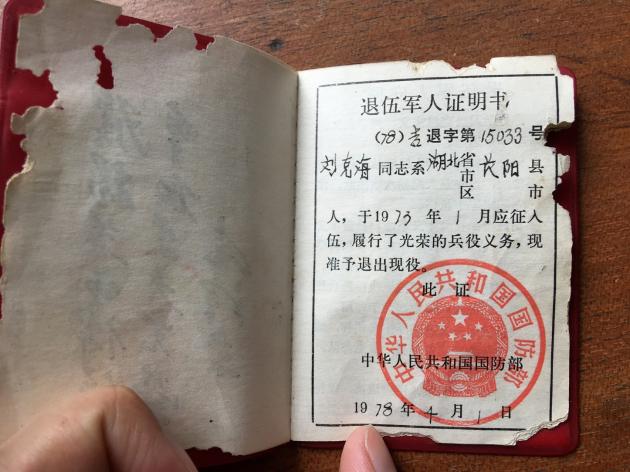 退伍军人证明书
(78)吉退字第15033号
刘克海同志系湖北省市区长阳县市
人，于1973年1月应征入
伍，履行了光荣的兵役义务，现
准予退出现役。
此证
中华人民共和国国防部
中华人民共和国国防部
1978年4月1日